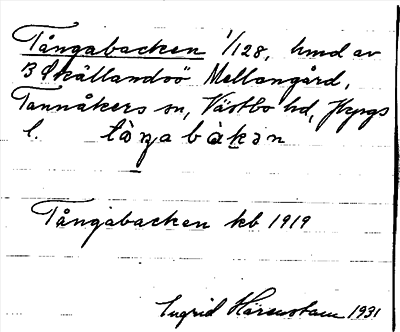 Tångabacken 1/128, hmd av
3 Skållandsö Mellangård,
Tannåkers sn, Västbo hd, Jkpgs
l. tåŋabakən
Tångabacken kb 1919
Ingrid Härenstam 1931